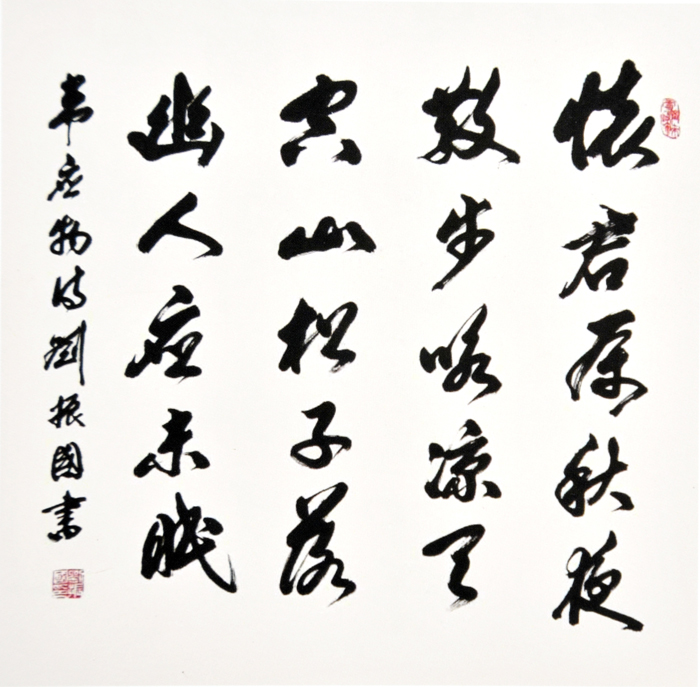 懷君属秋夜
散步咏凉天
空山松子落
幽人应未眠
韋应物诗劉振國書